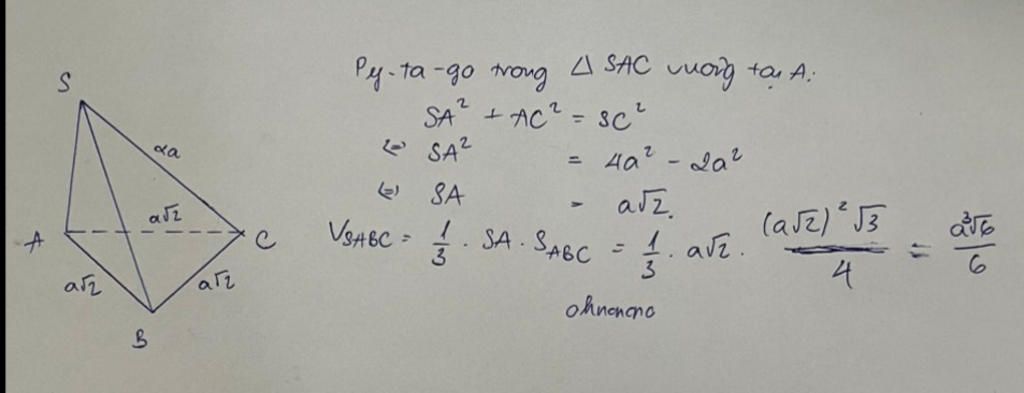 S
2a
a√2
A
C
a√2
a√2
B
Py-ta-go trong △ SAC vuông tại A:
SA² + AC² = SC²
(=) SA² = 4a² - 2a²
(=) SA = a√2.
V_SABC = 1/3 · SA · S_ABC = 1/3 · a√2 · (a√2)²√3 / 4 = a³√6 / 6
ohnonono